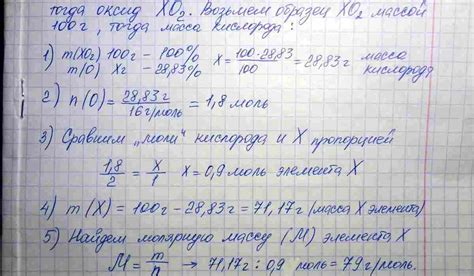 тогда оксид XO₂. Возьмем образец XO₂ массой
100г, тогда масса кислорода:
1) m(XO₂) 100г – 100% X = 100·28,83/100 = 28,83г масса
m(O) Xг – 28,83% кислорода
2) n(O) = 28,83г/16г/моль = 1,8 моль
3) Сравним „моли“ кислорода и X пропорцией
1,8/2 = X/1 X = 0,9 моль элемента X
4) m(X) = 100г – 28,83г = 71,17г (масса X элемента)
5) Найдем молярную массу (M) элемента X
M = m/n → 71,17г : 0,9 моль = 79г/моль.